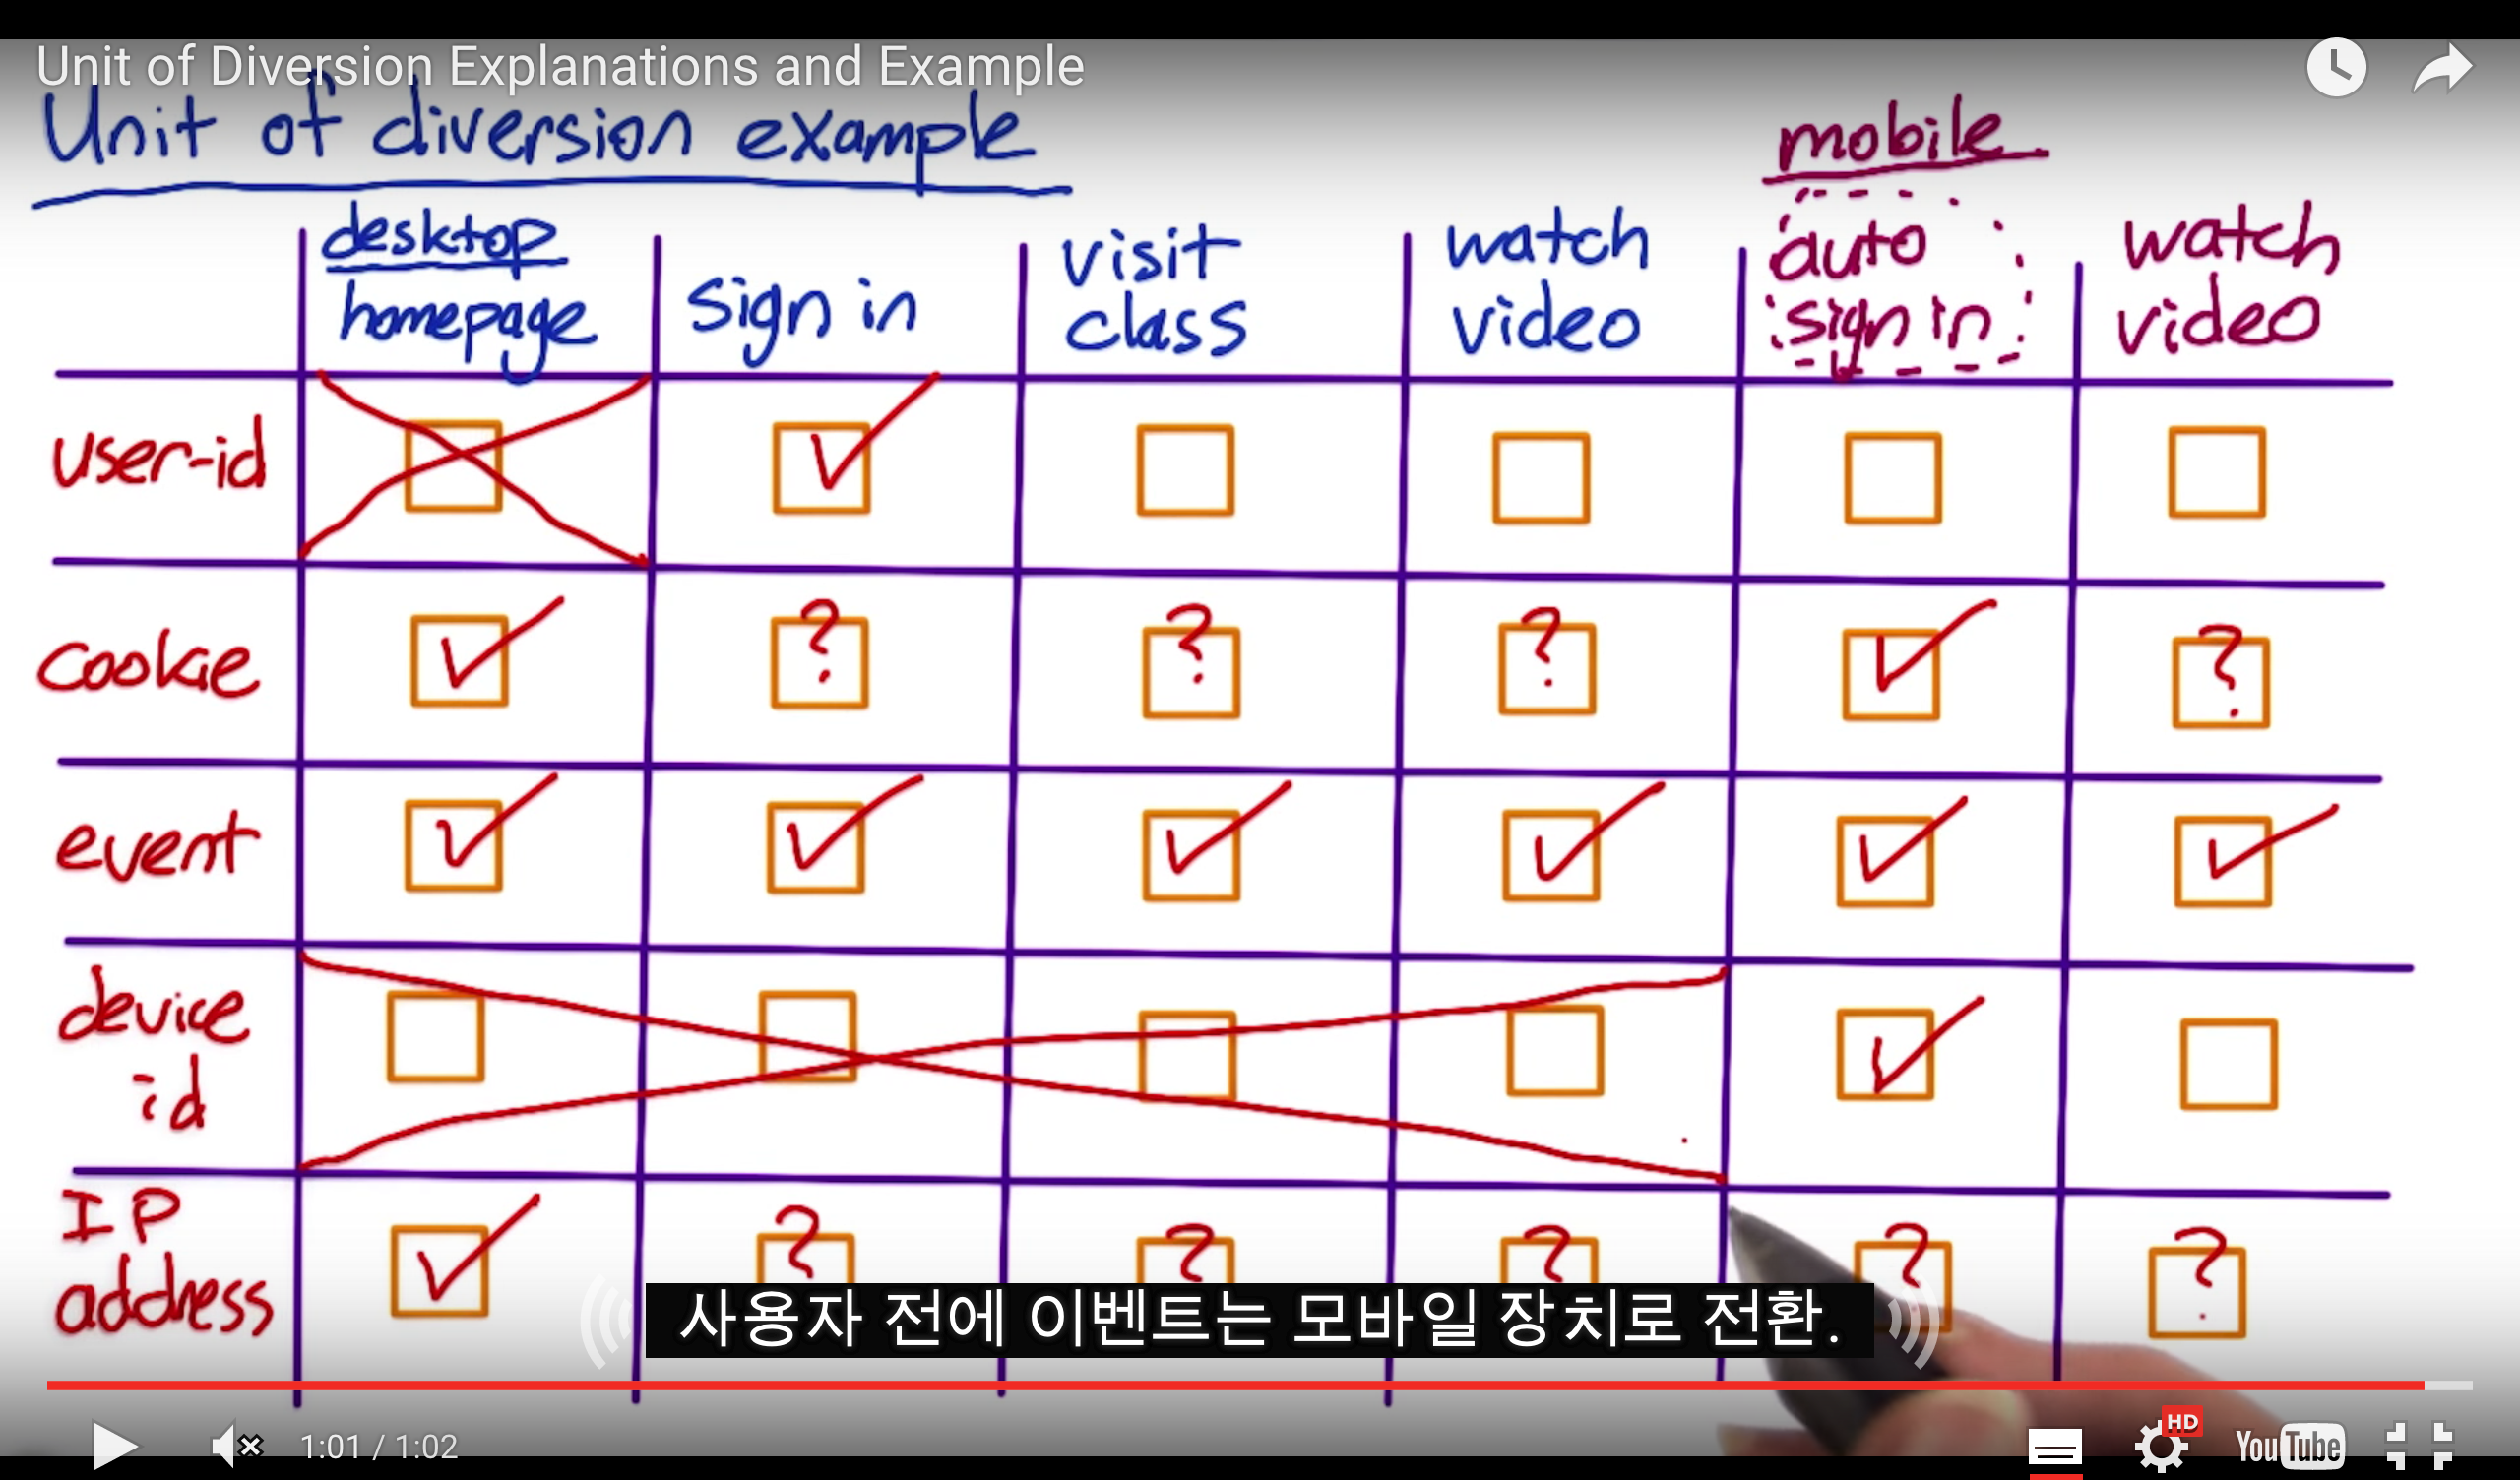 Unit of Diversion Explanations and Example
Unit of diversion example
mobile
desktop
homepage
sign in
visit
class
watch
video
auto
sign in
watch
video
user-id
cookie
? ? ? ?
event
device
id
IP
address
? ? ? ? ?
사용자 전에 이벤트는 모바일 장치로 전환.
1:01 / 1:02
HD
YouTube